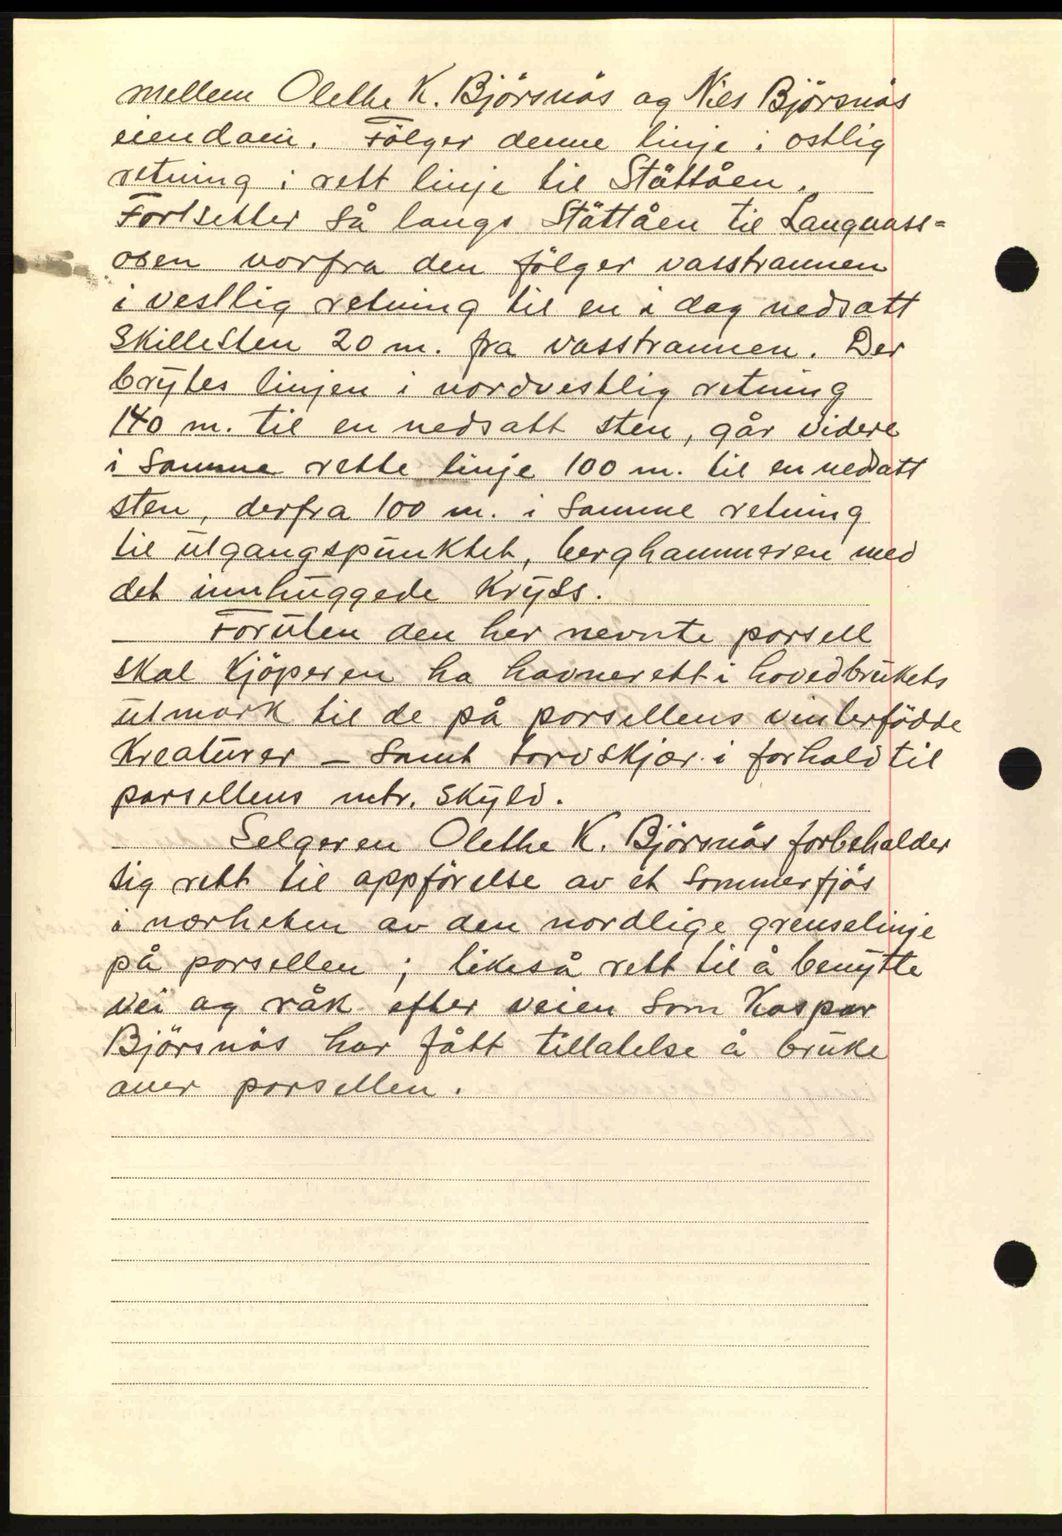 mellem Olethe K. Björsnös og Nils Björsnös
eiendom. Følger denne linje i ostlig
retning i rett linje til Ståttåen.
Fortsetter så langs Ståttåen til Langvass-
osen vorfra den følger vasstrannen
i vestlig retning til en i dag nedsatt
skillesten 20 m. fra vasstrannen. Der
brytes linjen i nordvestlig retning
140 m. til en nedsatt sten, går videre
i samme rette linje 100 m. til en nedsatt
sten, derfra 100 m. i samme retning
til utgangspunktet, berghammeren med
det innhuggede kryss.
Foruten den her nevnte parsell
skal kjöperen ha havnerett i hovedbrukets
utmark til de på parsellens vinterfödde
kreaturer – samt torvskjær i forhold til
parsellens mtr. skyld.
Selgeren Olethe K. Björsnös forbeholder
sig rett til oppförelse av et sommerfjös
i nærheten av den nordlige grenselinje
på parsellen ; likeså rett til å benytte
vei og råk efter veien som Kaspar
Björsnös har fått tillatelse å bruke
over parsellen.